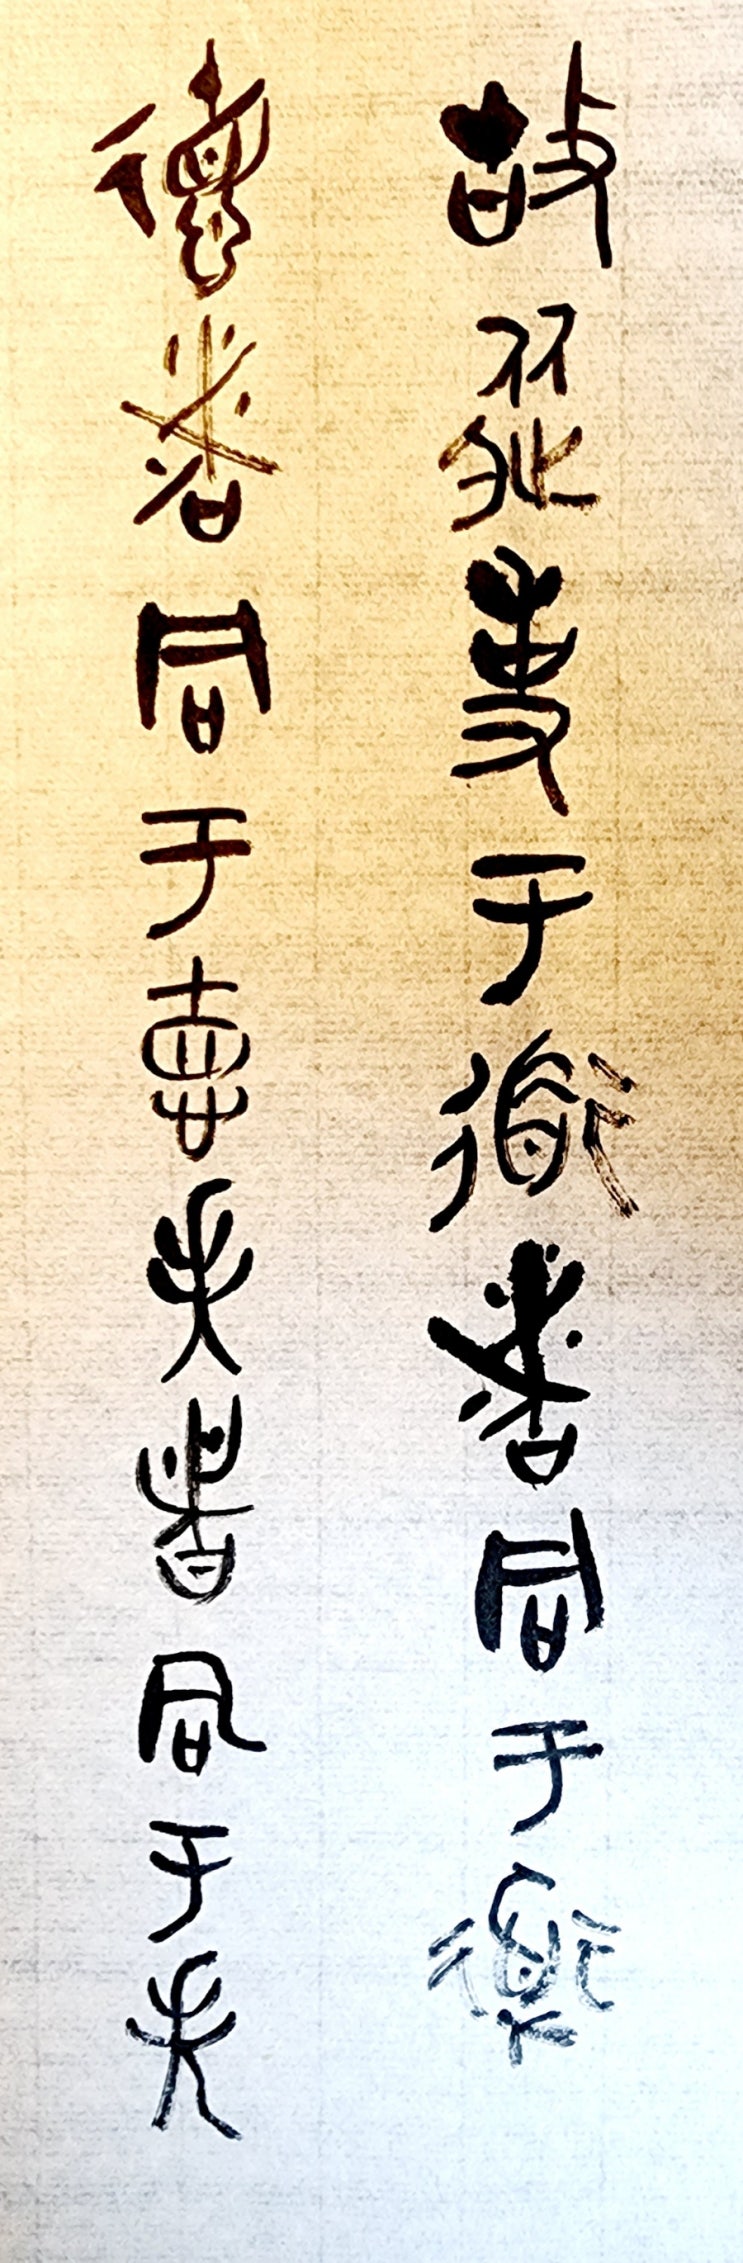 故從事于道者同于道
德者同于悳失者同于失